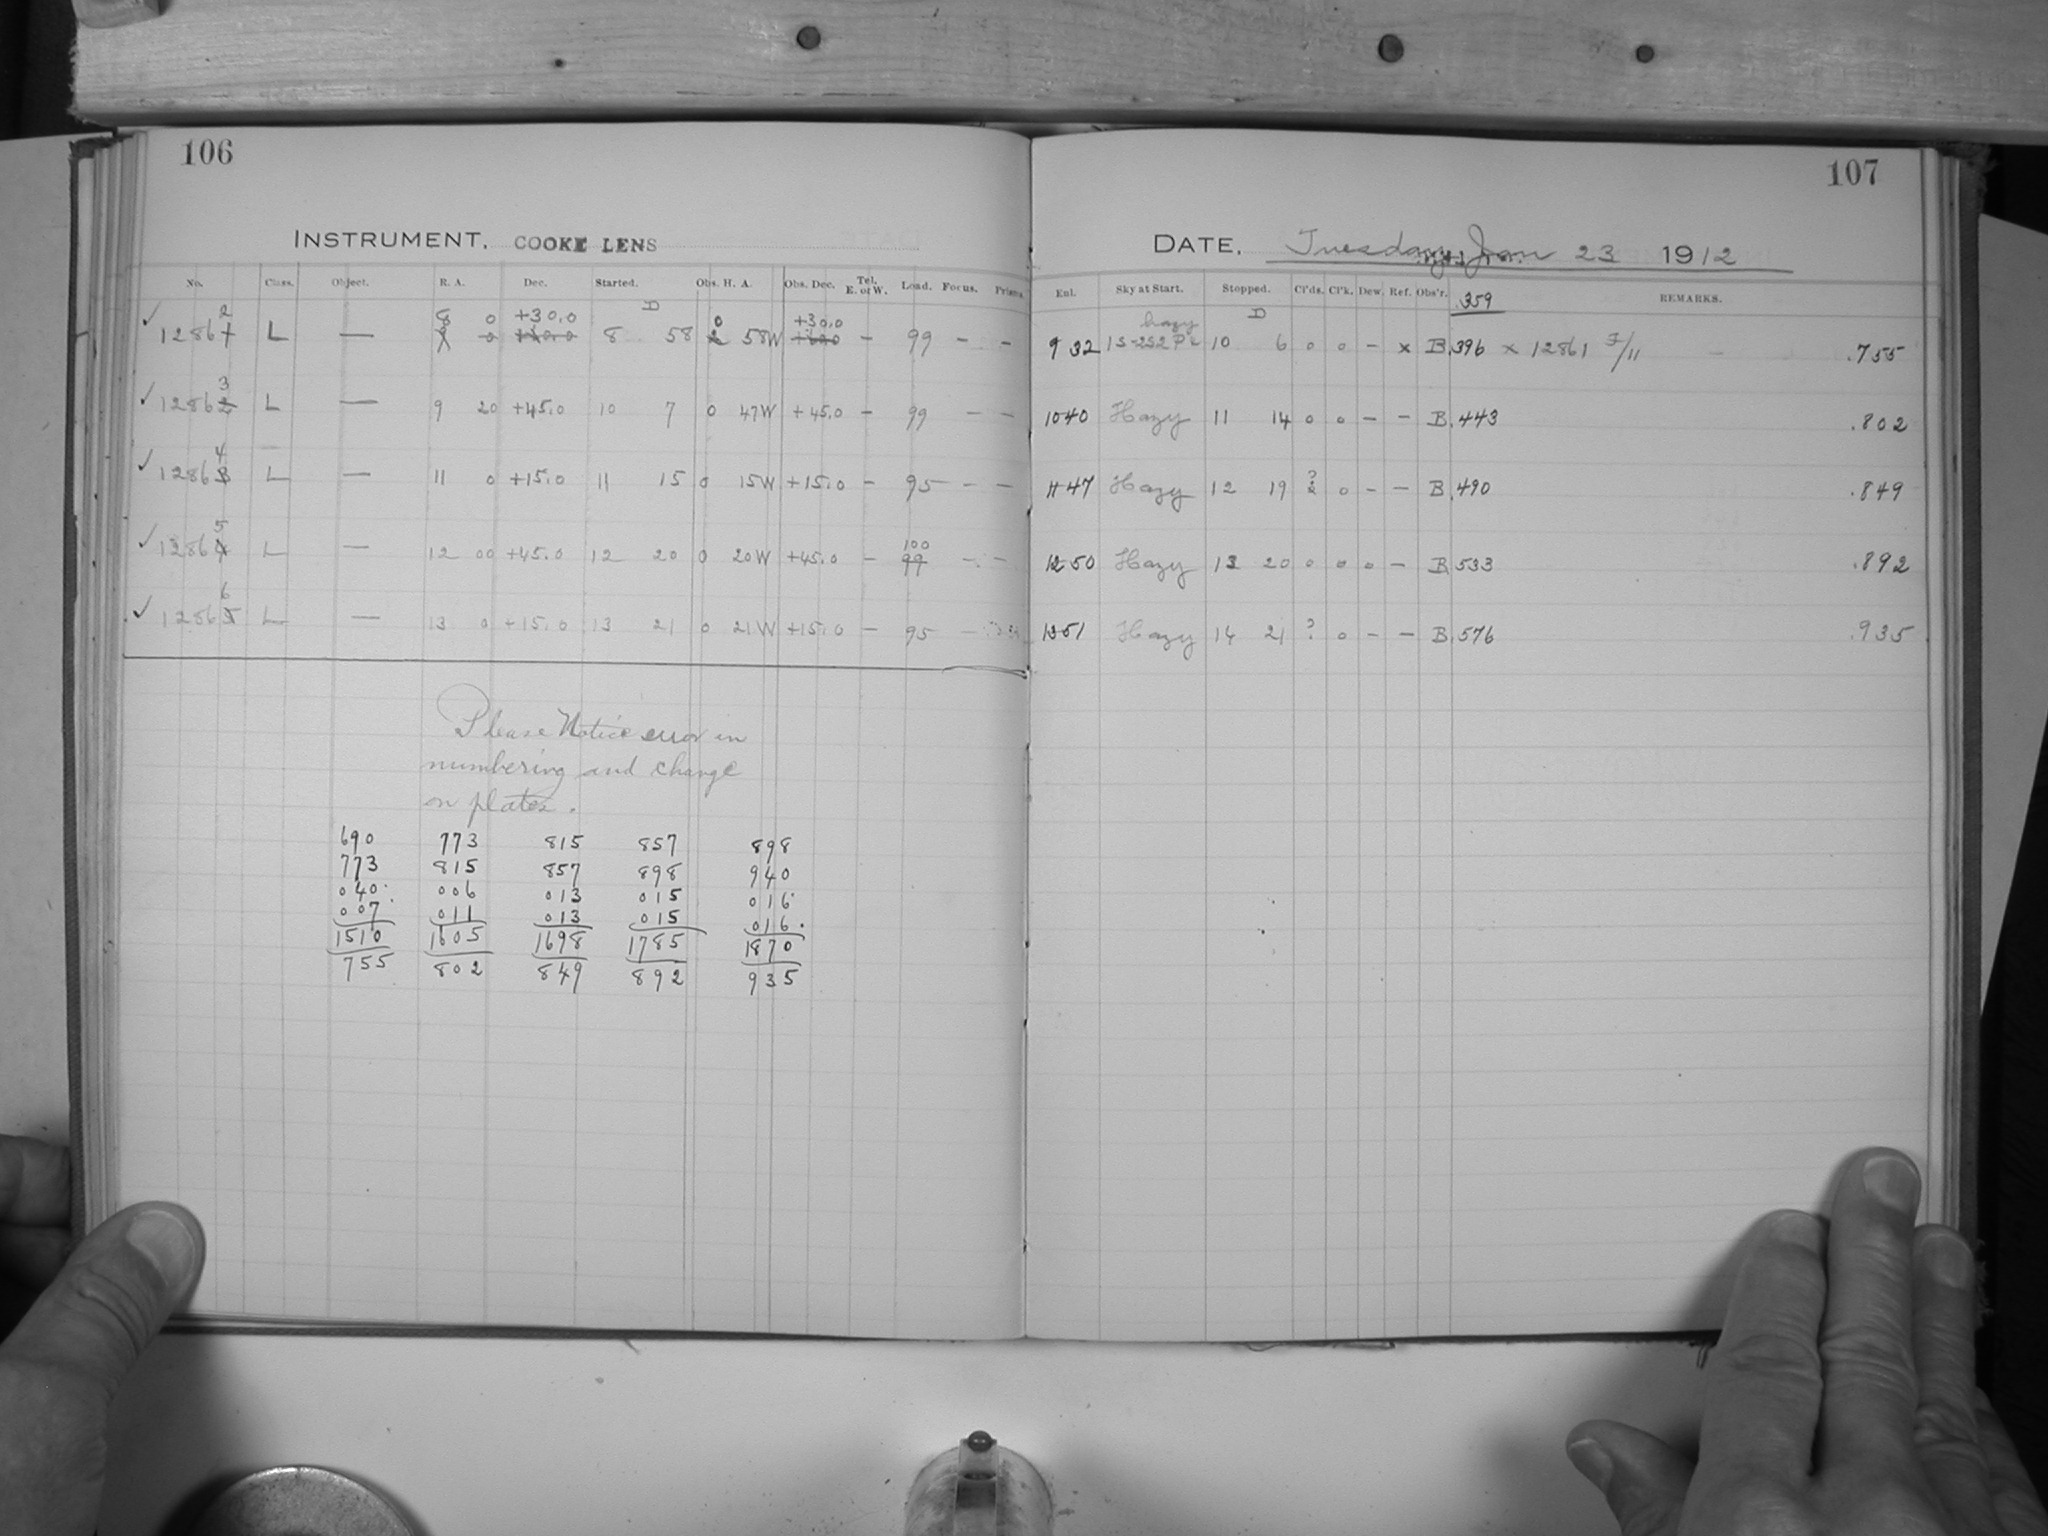 106
INSTRUMENT. COOKE LENS
No. Class. Object. R. A. Dec. Started. Obs. H. A. Obs. Dec. Tel. E. or W. Load. Focus. Prisms.
D
2 8 0 +30.0 0 +30.0
✓ 12861 L — 0 8 58 2 58W +60.0 – 99 – –
3
✓ 12862 L — 9 20 +45.0 10 7 0 47W +45.0 – 99 – –
4
✓ 12863 L — 11 0 +15.0 11 15 0 15W +15.0 – 95 – –
5 100
✓ 12864 L — 12 00 +45.0 12 20 0 20W +45.0 – 99 – –
6
✓ 12865 L — 13 0 +15.0 13 21 0 21W +15.0 – 95 –
Please Notice error in
numbering and change
on plates.
690 773 815 857 898
773 815 857 898 940
040 006 013 015 016
007 011 013 015 016
1510 1605 1698 1785 1870
755 802 849 892 935
107
DATE. Tuesday Jan 23 1912
Enl. Sky at Start. Stopped. Cl'ds. Cl'k. Dew. Ref. Obs'r. .359 REMARKS.
hazy D
9 32 15-252 P'r 10 6 0 0 – x B .396 x 12861 .755
10 40 Hazy 11 14 0 0 – – B .443 .802
?
11 47 Hazy 12 19 2 0 – – B .490 .849
12 50 Hazy 13 20 0 0 0 – B .533 .892
13 51 Hazy 14 21 ? 0 – – B .576 .935